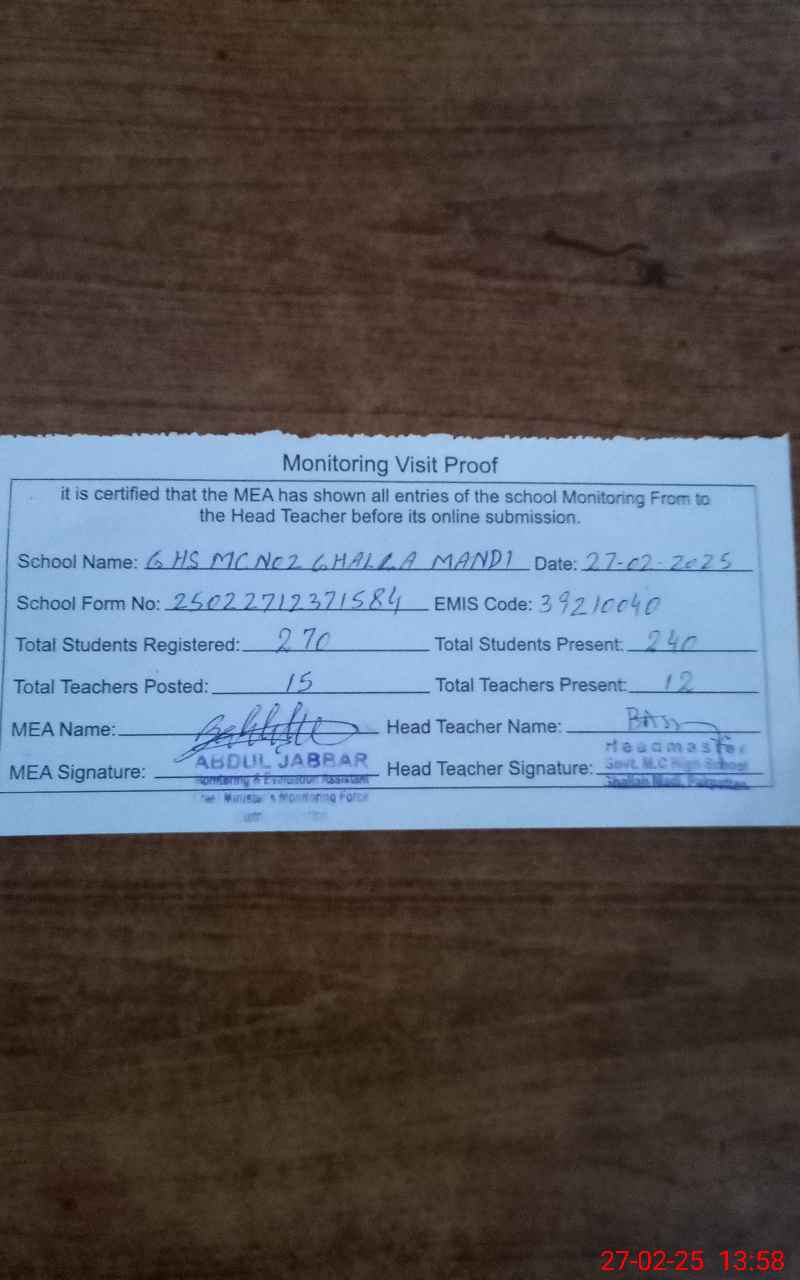 Monitoring Visit Proof
it is certified that the MEA has shown all entries of the school Monitoring From to
the Head Teacher before its online submission.
School Name: GHS MC NO2 GHALLA MANDI Date: 27-02-2025
School Form No: 25022712371584 EMIS Code: 39210040
Total Students Registered: 270 Total Students Present: 240
Total Teachers Posted: 15 Total Teachers Present: 12
MEA Name: Head Teacher Name:
ABDUL JABBAR Headmaster
MEA Signature: Head Teacher Signature: Govt. M.C High School
Monitoring & Evaluation Assistant
Chief Minister's Monitoring Force
27-02-25 13:58